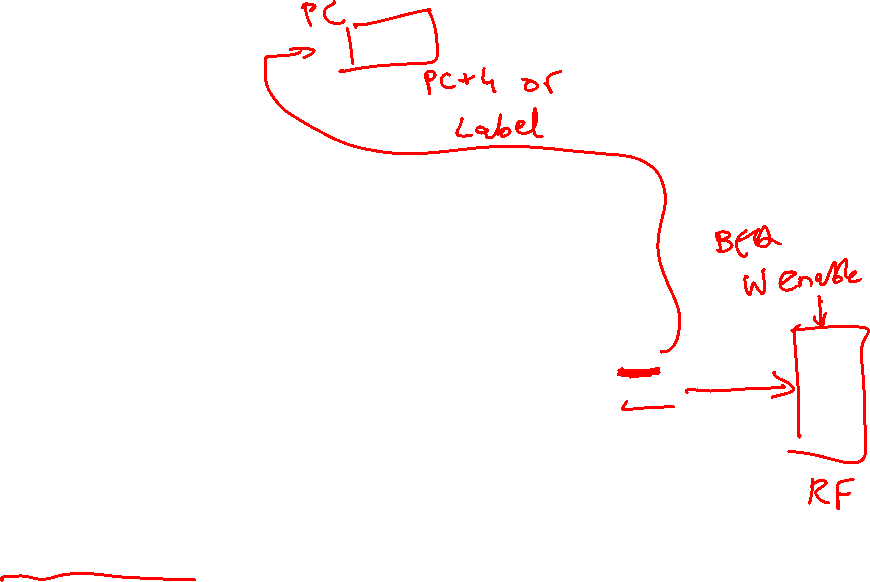 PC
PC+4 or
Label
BEQ
W enable
RF